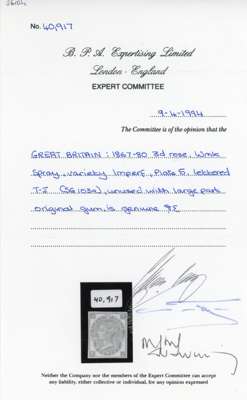 No. 40,917
B. P. A. Expertising Limited
London - England
EXPERT COMMITTEE
9-4-1994
The Committee is of the opinion that the
GREAT BRITAIN : 1867-80 3d rose, Wmk
Spray, variety Imperf, Plate 5, lettered
T-I (SG 103a), unused with large part
original gum is genuine
40,917
Neither the Company nor the members of the Expert Committee can accept
any liability, either collective or individual, for any opinion expressed